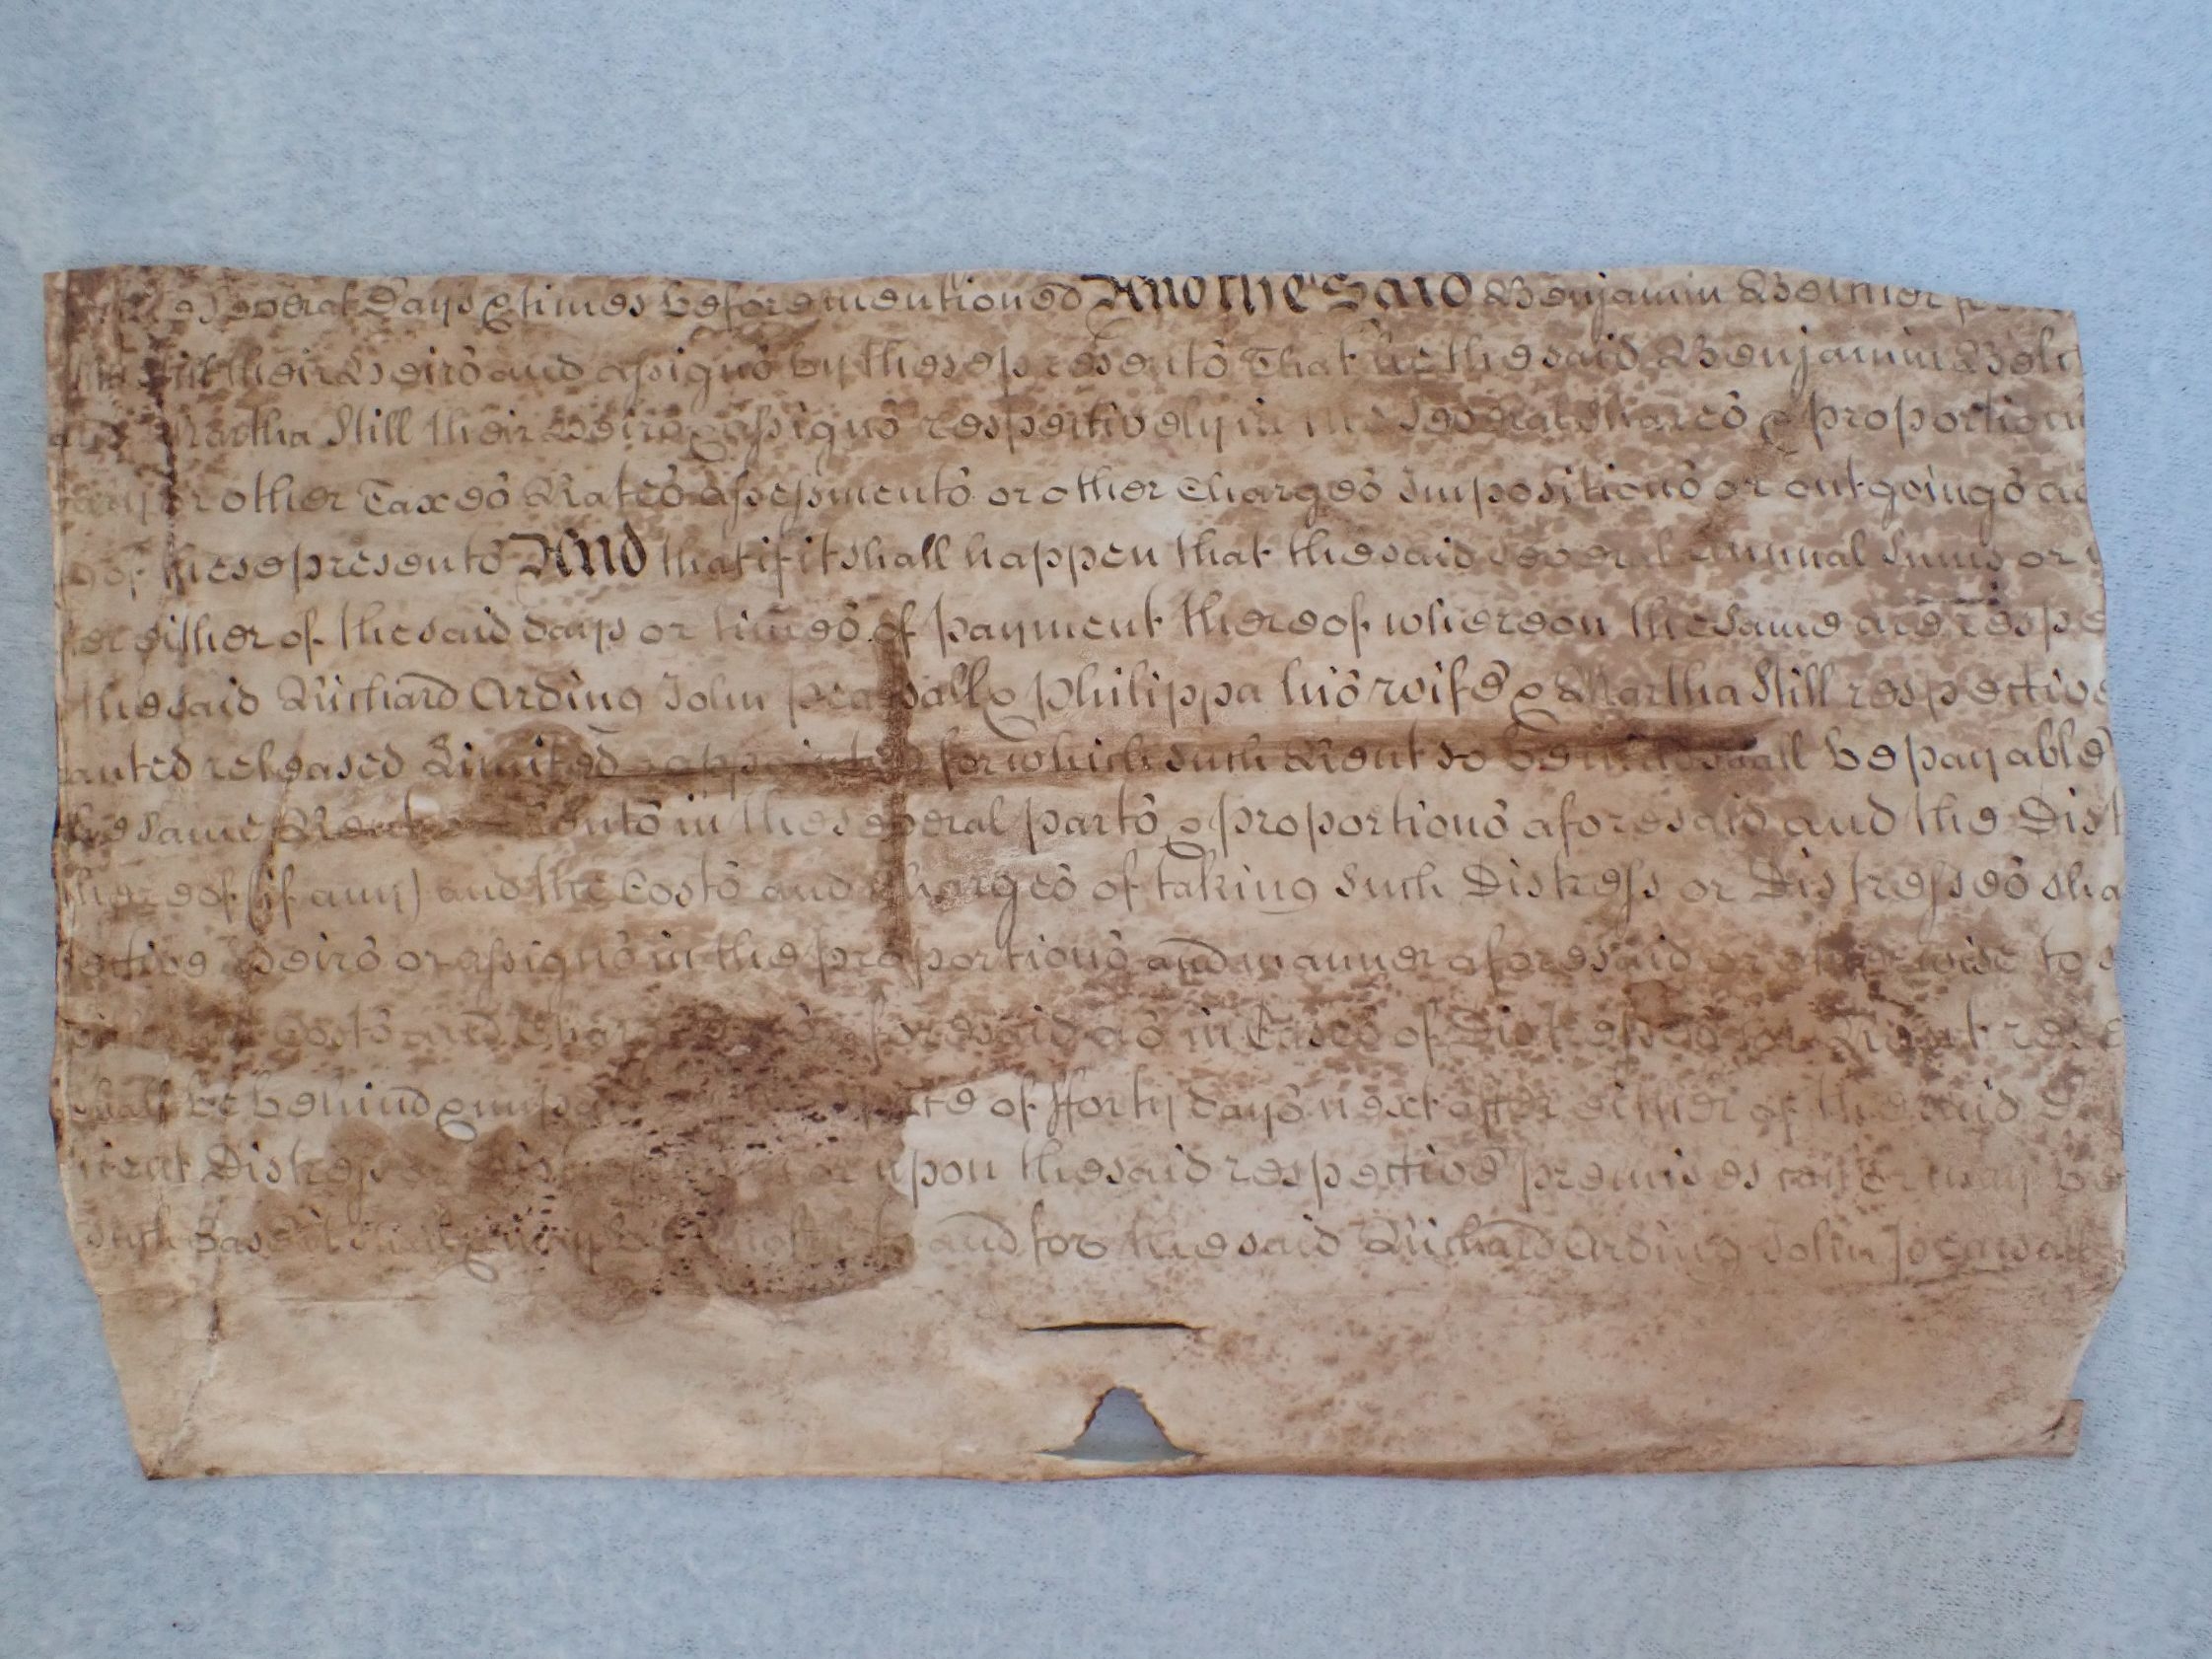 several Days & times before mentioned And the said Benjamin
Still their Heirs and assigns by these presents That he the said Benjamin
Martha Still their Heirs & assigns respectively in several shares & proportion
other Taxes Rates assessments or other Charges Impositions or outgoings
of these presents And that if it shall happen that the said several annual sums or
either of the said days or times of payment thereof whereon the same are respe
the said Richard Arding John Peawall & Philippa his wife & Martha Still respective
anted released Limited & appointed for which such Rent so behind shall be payable
the same Rent in the several parts & proportions aforesaid and the Dist
thereof (if any) and the Costs and Charges of taking such Distress or Distresses sha
ective Heirs or assigns in the proportions and manner aforesaid or otherwise to
Costs and aforesaid as in Cases of Distresses for Rent rese
shall be behind & unpa of fforty days next after either of the said Da
Distress upon the said respective premises may be
such and for the said Richard Arding John Peawall